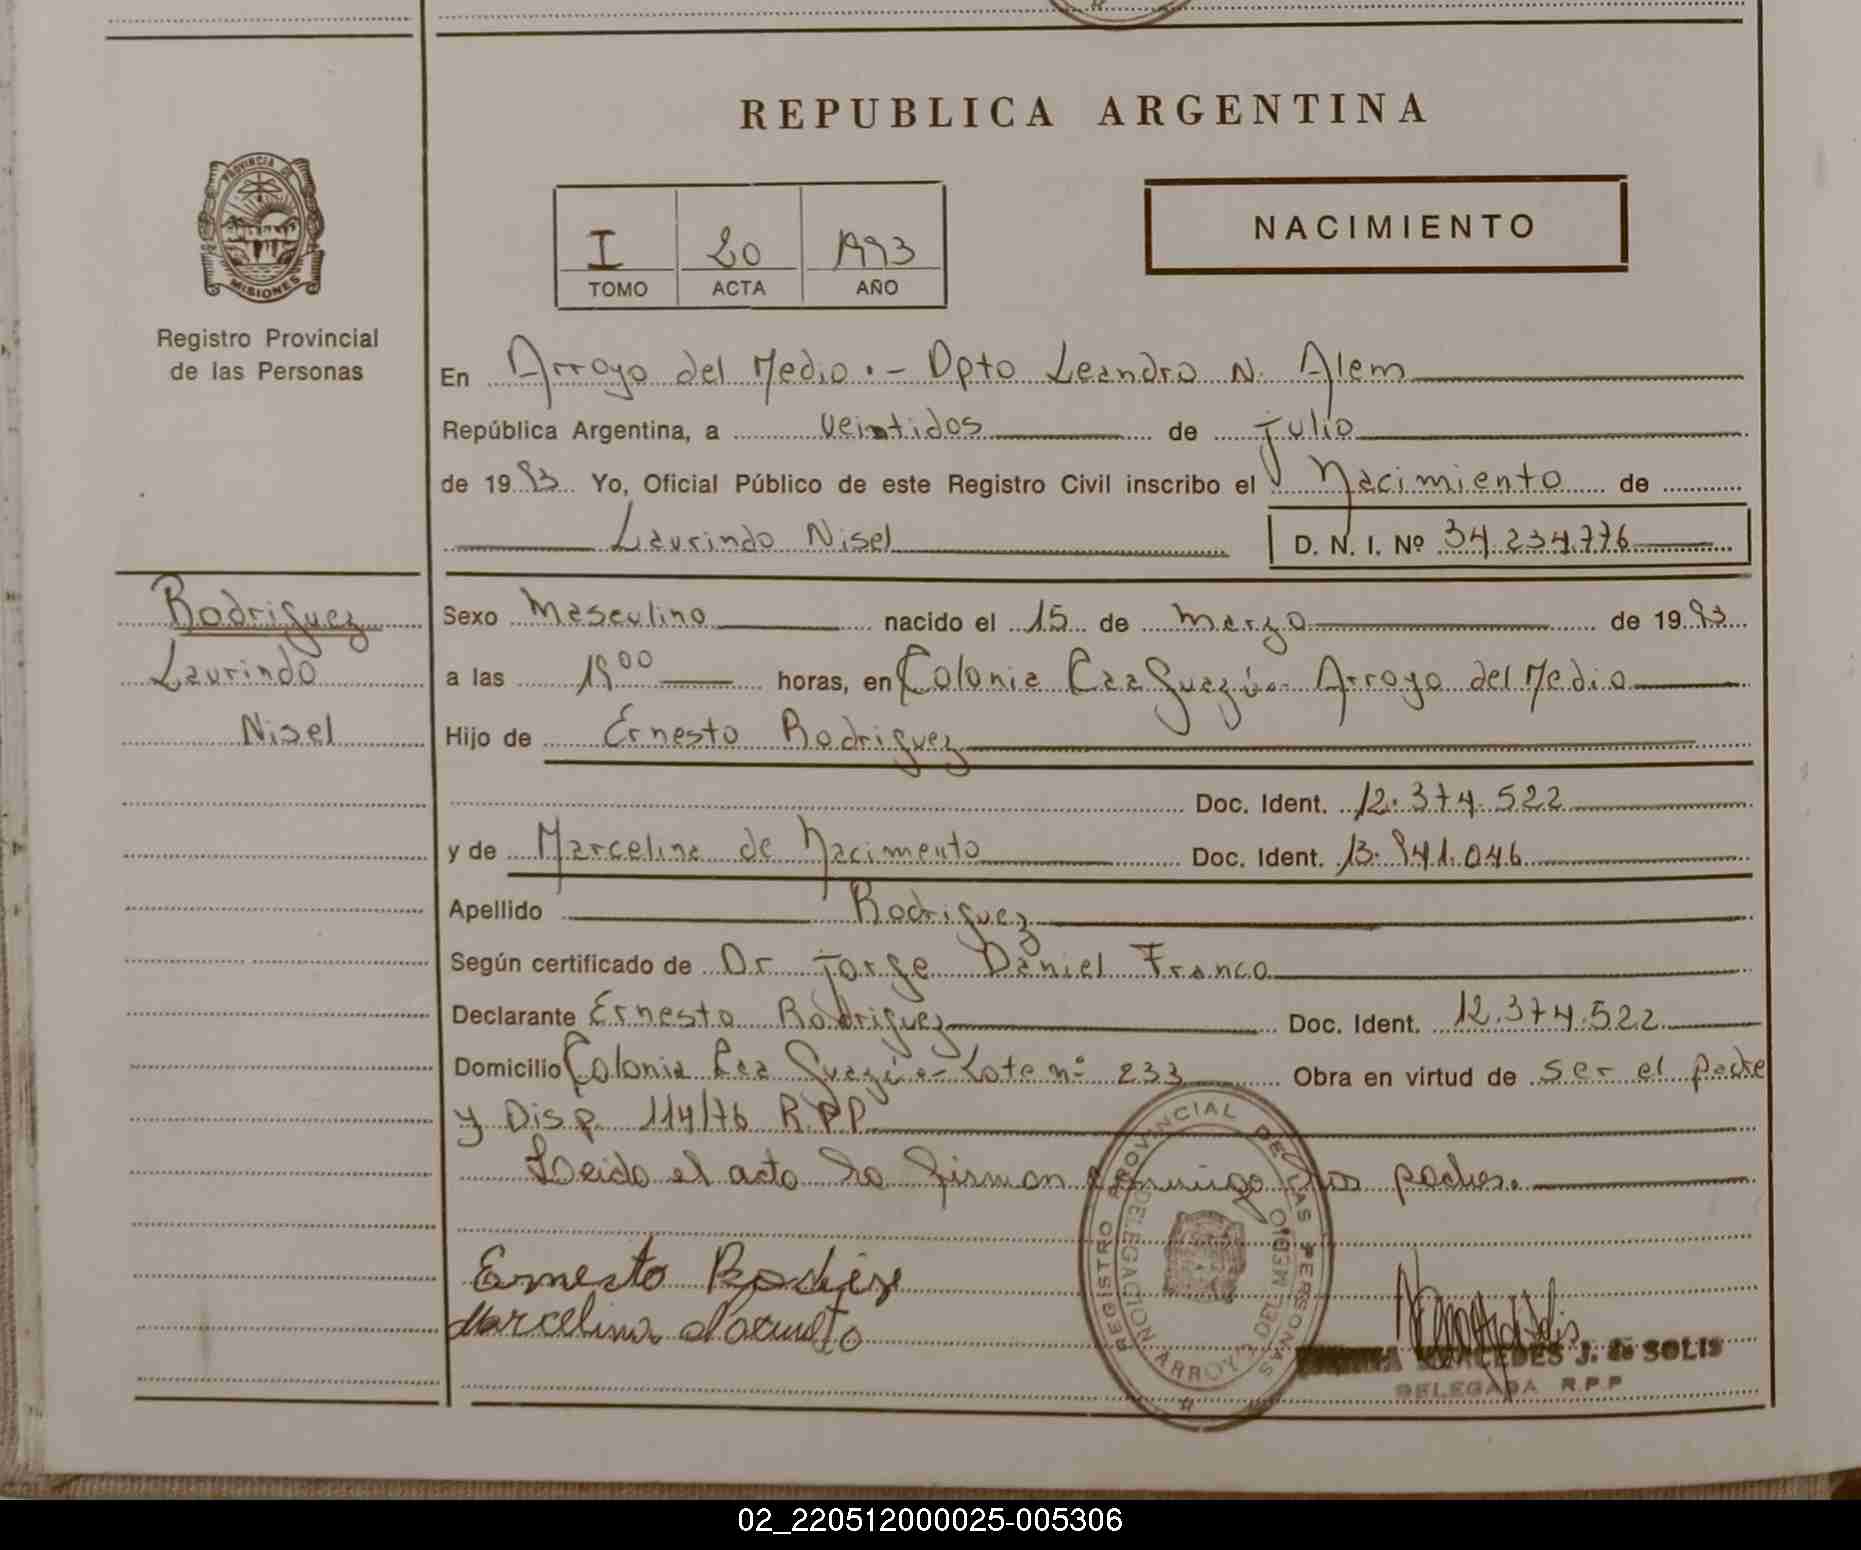 REPUBLICA ARGENTINA
PROVINCIA DE
MISIONES
Registro Provincial
de las Personas
I 20 1993
TOMO ACTA AÑO
NACIMIENTO
En Arroyo del Medio.- Dpto Leandro N. Alem
República Argentina, a veintidos de julio
de 1993 Yo, Oficial Público de este Registro Civil inscribo el Nacimiento de
Laurindo Nisel D. N. I. Nº 34.234.776
Rodriguez
Laurindo
Nisel
Sexo Masculino nacido el 15 de marzo de 1993
a las 19 00 horas, en Colonia Caa Guazú.- Arroyo del Medio
Hijo de Ernesto Rodriguez
Doc. Ident. 12.374.522
y de Marcelina de Nacimento Doc. Ident. 13.941.046
Apellido Rodriguez
Según certificado de Dr Jorge Daniel Franco
Declarante Ernesto Rodriguez Doc. Ident. 12.374.522
Domicilio Colonia Caa Guazú.- Lote nº 233 Obra en virtud de ser el padre
y Disp. 114/76 R.P.P
Leido el acto lo firman conmigo los padres.
REGISTRO PROVINCIAL DE LAS PERSONAS
DELEGACION ARROYO DEL MEDIO
Ernesto
Marcelina
MERCEDES J. de SOLIS
DELEGADA R.P.P
02_220512000025-005306